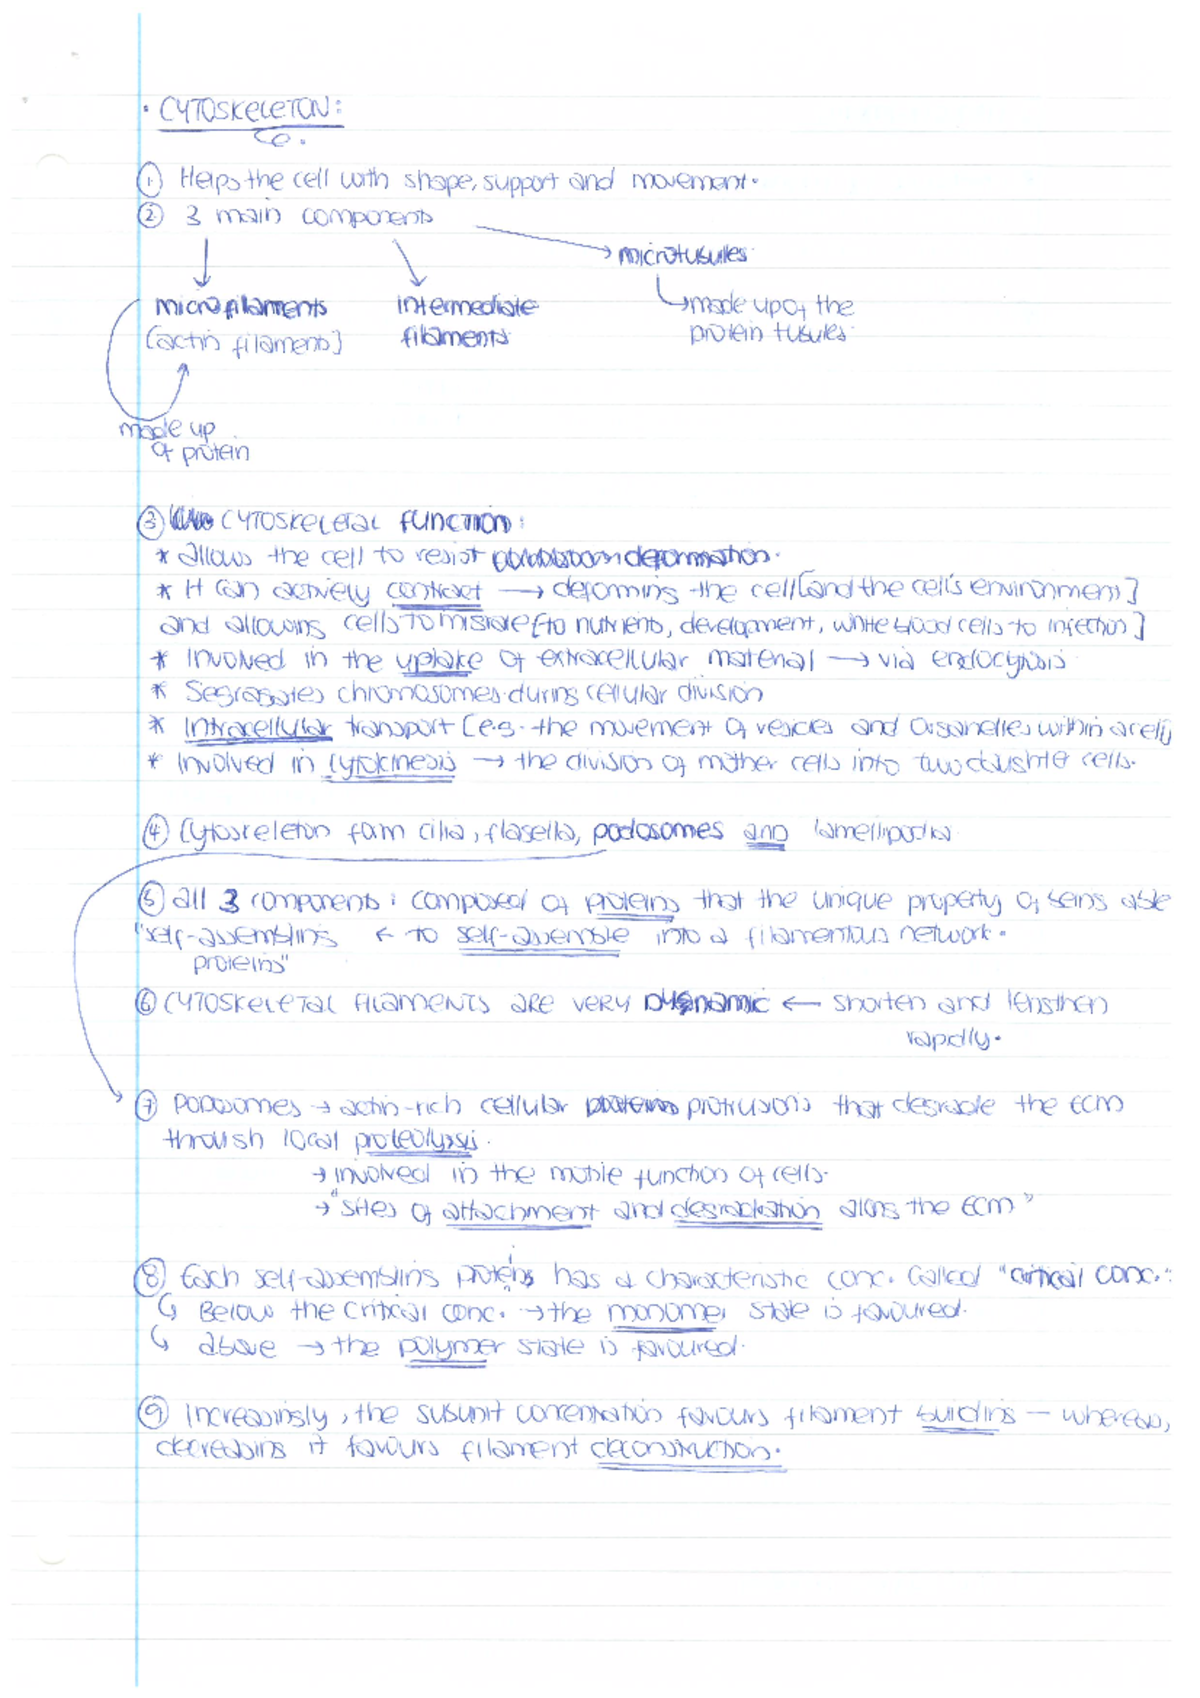 · CYTOSKELETON:
① Helps the cell with shape, support and movement.
② 3 main components
microtubules
microfilaments intermediate → made up of the
[actin filaments] filaments protein tubules
made up
of protein
③ CYTOSKELETAL FUNCTION:
* allows the cell to resist deformation.
* It can actively contract → deforming the cell [and the cell's environment]
and allowing cells to migrate [to nutrients, development, white blood cells to infection]
* Involved in the uptake of extracellular material → via endocytosis
* Segragates chromosomes during cellular division
* Intracellular transport [e.g. the movement of vesicles and organelles within a cell]
* Involved in cytokinesis → the division of mother cells into two daughter cells.
④ Cytoskeleton form cilia, flagella, podosomes and lamellipodia
⑤ all 3 components: composed of proteins that the unique property of being able
"self-assembling ← to self-assemble into a filamentous network.
proteins"
⑥ CYTOSKELETAL FILAMENTS ARE VERY DYNAMIC ← shorten and lengthen
rapidly.
⑦ Podosomes → actin-rich cellular protrusions that degrade the ECM
through local proteolysis.
→ involved in the motile function of cells.
→ "sites of attachment and degradation along the ECM"
⑧ Each self-assembling proteins has a characteristic conc. called "critical conc.":
↳ Below the critical conc. → the monomer state is favoured.
↳ above → the polymer state is favoured.
⑨ Increasingly, the subunit concentration favours filament building — whereas,
decreasing it favours filament deconstruction.